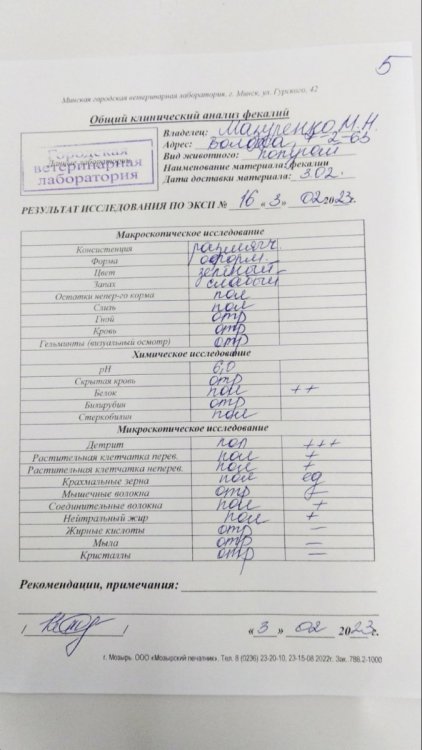 5
Минская городская ветеринарная лаборатория, г. Минск, ул. Гурского, 42
Общий клинический анализ фекалий
Городская
ветеринарная
лаборатория
Владелец: Мазуренко М.Н.
Адрес: -2-63
Вид животного: попугай
Наименование материала: фекалии
Дата доставки материала: 3.02.
РЕЗУЛЬТАТ ИССЛЕДОВАНИЯ ПО ЭКСП № 16 «3» 02 2023г.
Макроскопическое исследование
Консистенция размягч.
Форма оформ.
Цвет зеленый
Запах слабый
Остатки непер-го корма пол
Слизь пол
Гной отр
Кровь отр
Гельминты (визуальный осмотр) отр
Химическое исследование
pH 6,0
Скрытая кровь отр
Белок пол ++
Билирубин отр
Стеркобилин пол
Микроскопическое исследование
Детрит пол +++
Растительная клетчатка перев. пол +
Растительная клетчатка неперев. пол +
Крахмальные зерна пол ед
Мышечные волокна отр
Соединительные волокна пол +
Нейтральный жир пол +
Жирные кислоты отр —
Мыла отр —
Кристаллы отр —
Рекомендации, примечания:
«3» 02 2023г.
г. Мозырь. ООО «Мозырский печатник». Тел. 8 (0236) 23-20-10, 23-15-08 2022г. Зак. 786.2-1000